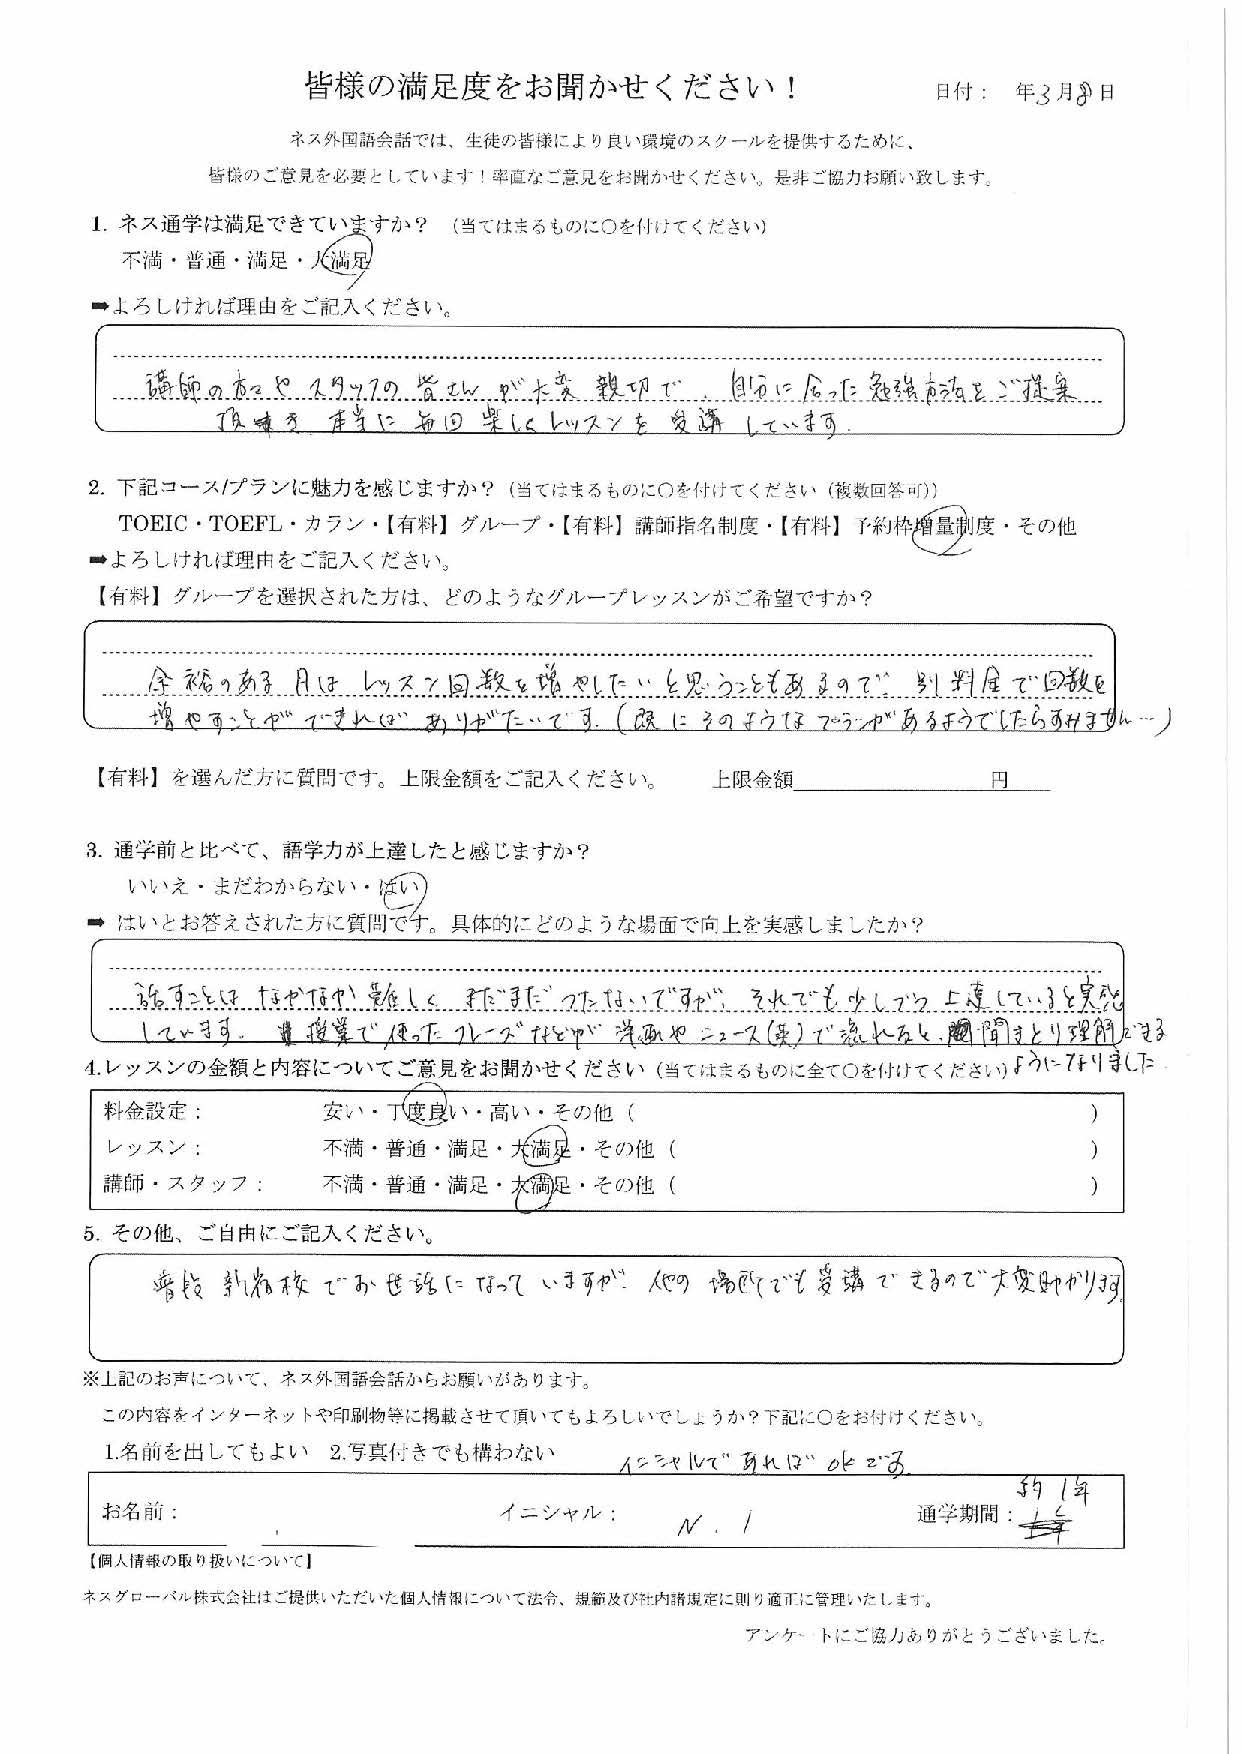 皆様の満足度をお聞かせください！
日付： 年3月8日
ネス外国語会話では、生徒の皆様により良い環境のスクールを提供するために、
皆様のご意見を必要としています！率直なご意見をお聞かせください。是非ご協力お願い致します。
1. ネス通学は満足できていますか？（当てはまるものに〇を付けてください）
不満・普通・満足・大満足
➡よろしければ理由をご記入ください。
講師の方々や スタッフの 皆さんが大変 親切で、自分に合った勉強方法をご提案
頂き 本当に 毎回 楽しくレッスンを 受講 しています。
2. 下記コース/プランに魅力を感じますか？（当てはまるものに〇を付けてください（複数回答可））
TOEIC・TOEFL・カラン・【有料】グループ・【有料】講師指名制度・【有料】予約枠増量制度・その他
➡よろしければ理由をご記入ください。
【有料】グループを選択された方は、どのようなグループレッスンがご希望ですか？
余裕のある 月は レッスン回数を増やしたいと思うこともあるので、別料金で回数を
増やすことが できれば ありがたいです。(既に そのような プランがあるようでしたらすみません…)
【有料】を選んだ方に質問です。上限金額をご記入ください。 上限金額 円
3. 通学前と比べて、語学力が上達したと感じますか？
いいえ・まだわからない・はい
➡ はいとお答えされた方に質問です。具体的にどのような場面で向上を実感しましたか？
話すことは なかなか 難しく まだまだ つたないですが、それでも 少しづつ 上達していると実感
しています。授業で 使った フレーズなどが 洋画や ニュース(英)で 流れると、聞きとり理解できる
ようになりました
4.レッスンの金額と内容についてご意見をお聞かせください（当てはまるものに全て〇を付けてください）
料金設定： 安い・丁度良い・高い・その他（ ）
レッスン： 不満・普通・満足・大満足・その他（ ）
講師・スタッフ： 不満・普通・満足・大満足・その他（ ）
5. その他、ご自由にご記入ください。
普段 新宿校 でお世話に なって いますが、他の 場所でも 受講 できるので 大変助かります。
※上記のお声について、ネス外国語会話からお願いがあります。
この内容をインターネットや印刷物等に掲載させて頂いてもよろしいでしょうか？下記に〇をお付けください。
1.名前を出してもよい 2.写真付きでも構わない イニシャルで あれば okです
お名前： イニシャル： N.I 通学期間： 約1年
【個人情報の取り扱いについて】
ネスグローバル株式会社はご提供いただいた個人情報について法令、規範及び社内諸規定に則り適正に管理いたします。
アンケートにご協力ありがとうございました。